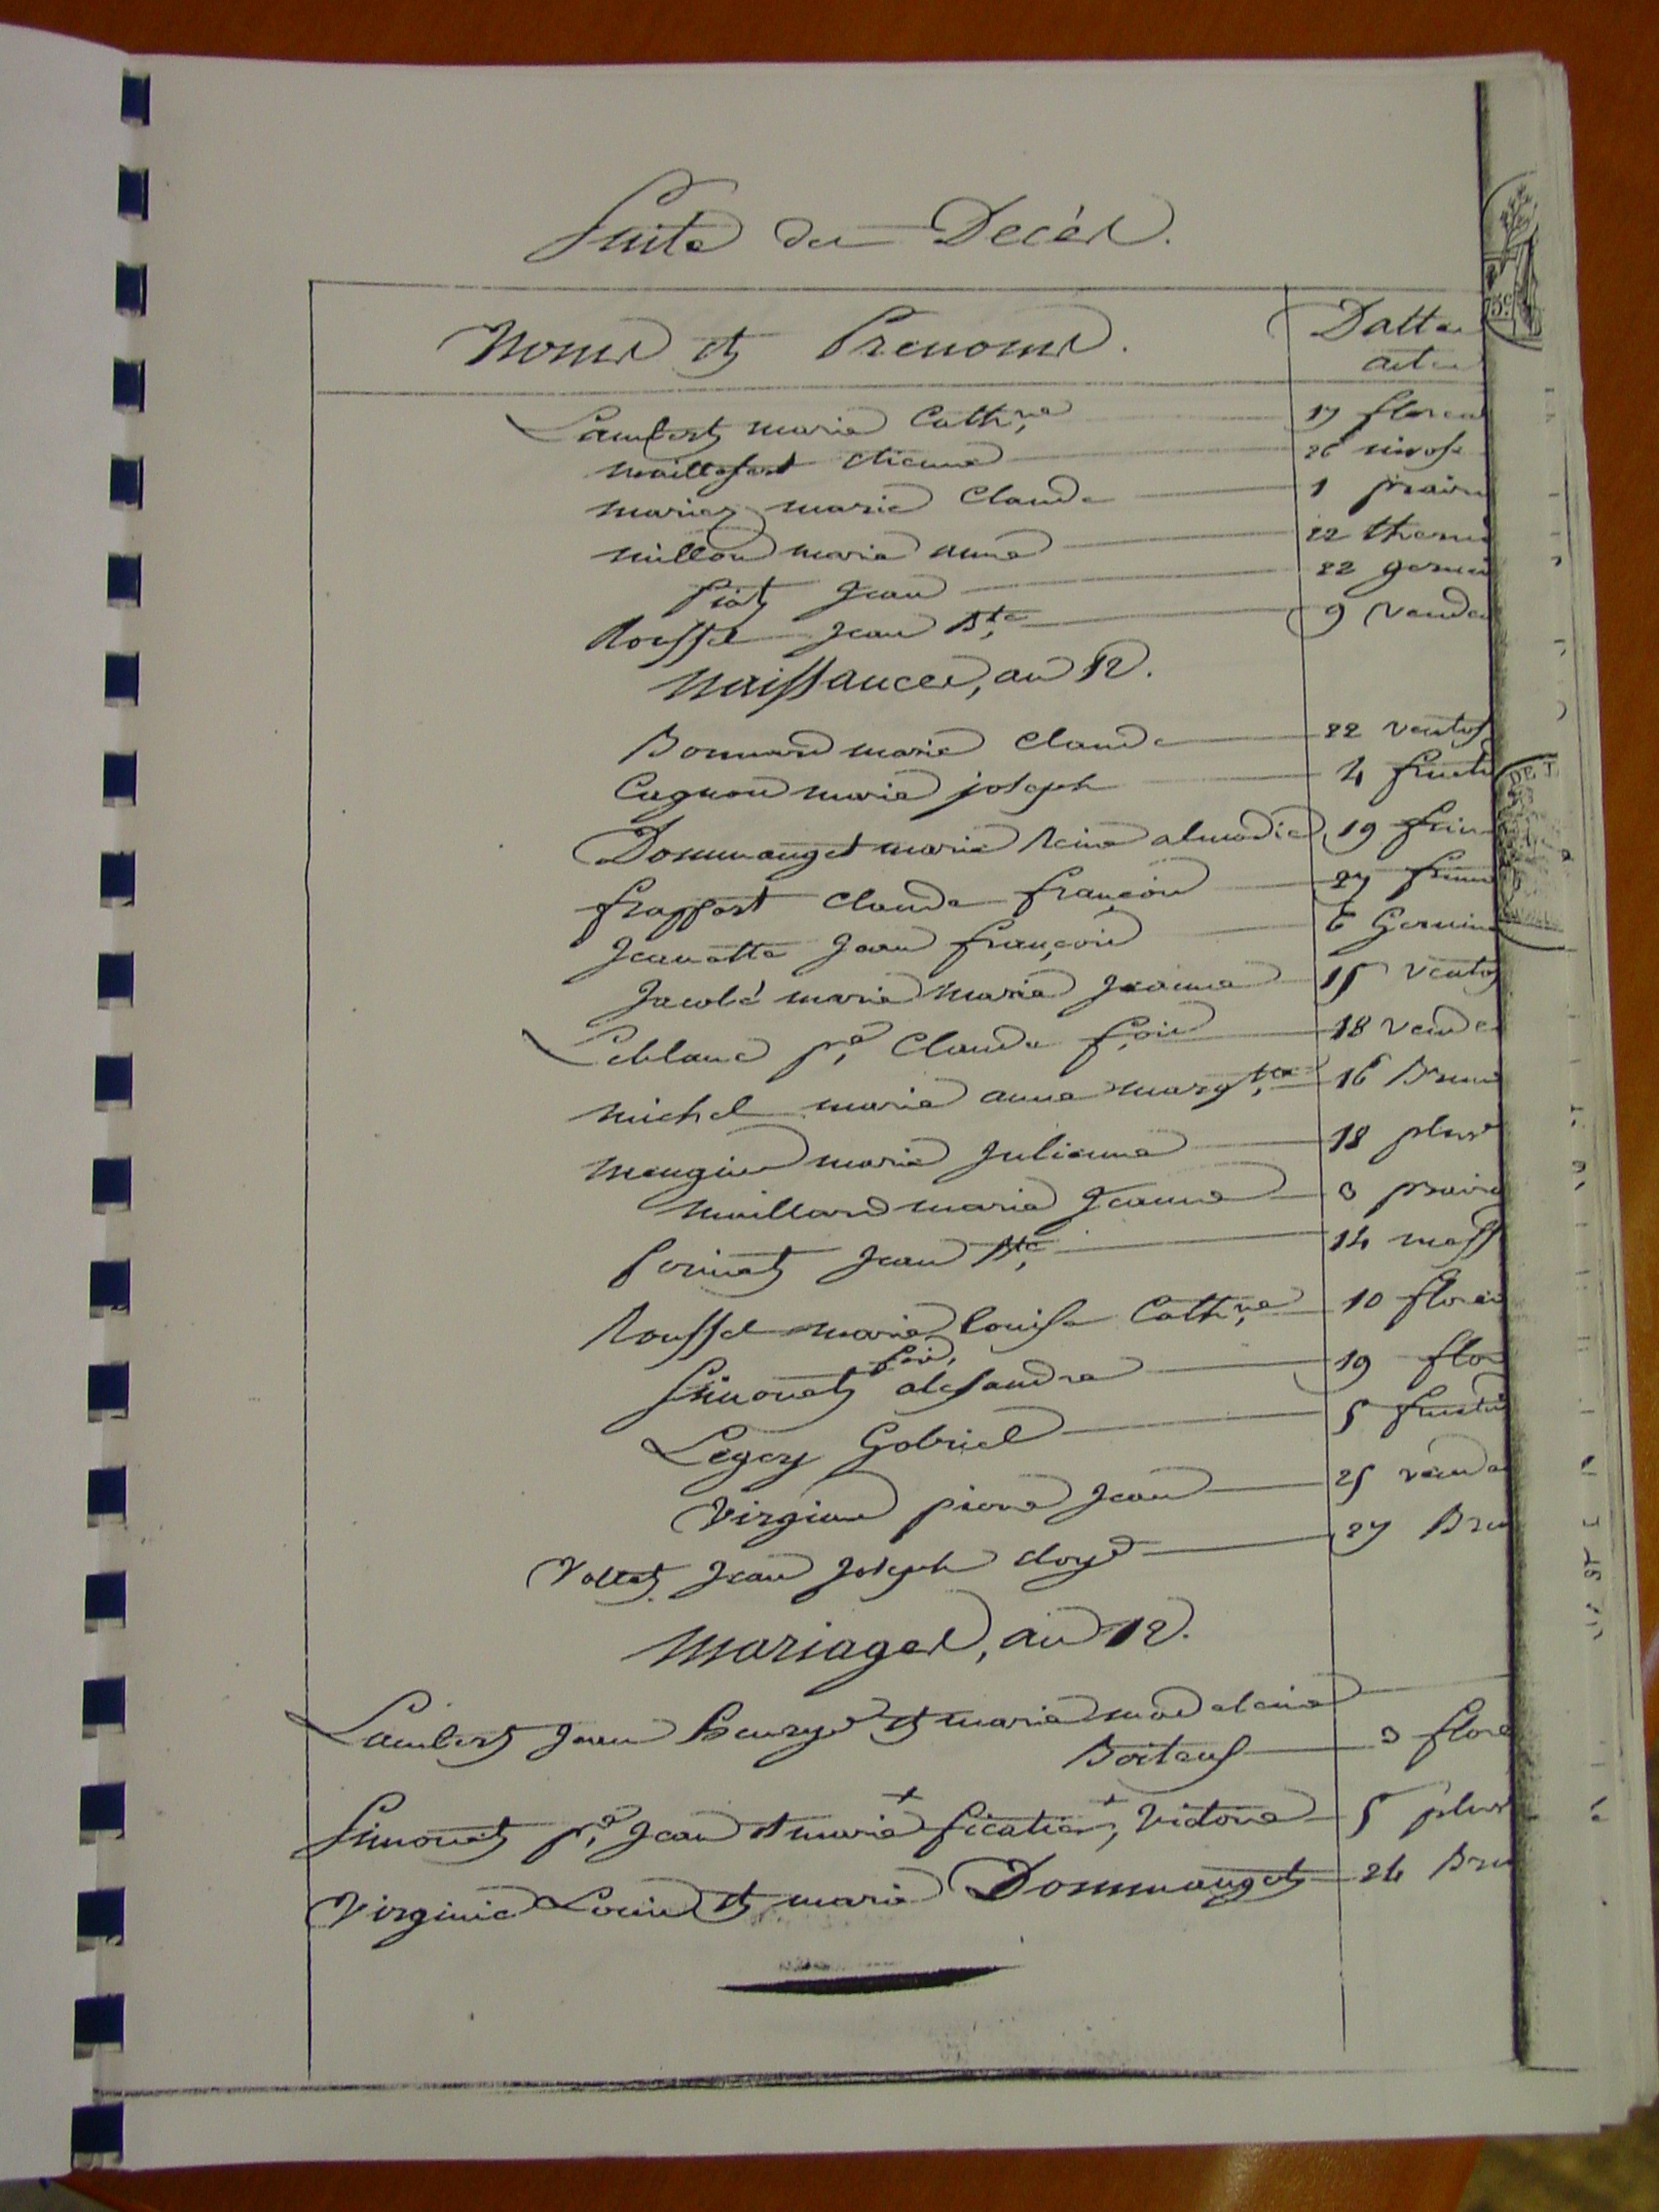 Suite des Decès.
Noms et Prenoms. Datte
acte
Lambert marie Cath,ne 17 floreal
maillefert etienne 26 nivose
mariez marie Claude 1 prairi
millon marie anne 22 thermi
Piot Jean 22 germi
Roussel Jean Bte 9 vende
Naissances, an 12.
Bonnard marie Claude 22 ventos
Cagnon marie joseph 4 fructi
Dommanget marie Reine 19 frim
frappart Claude françois 27 frim
Jeanette Jean françois 6 Germin
Jacobé marie marie Jeanne 15 ventos
Leblanc p,re Claude f,ois 18 vende
michel marie anne marg,te 16 Brum
mengin marie Julienne 18 pluv
maillard marie Jeanne 3 prairi
Perinet Jean Bte, 14 mess
Roussel marie louise Cath,ne 10 florea
fois,
Simonet alexandre 19 flor
Legey Gabriel 5 fructi
Virgine pierre Jean 25 vende
Vollet Jean Joseph eloye 27 Bru
Mariages, an 12.
Lambert Jean henrye et marie madelaine
Boiteux 3 flore
Simonet p,re Jean et marie ficatier, victoire 5 pluv
Virginie Louis et marie Dommanget 24 Bru
DE L